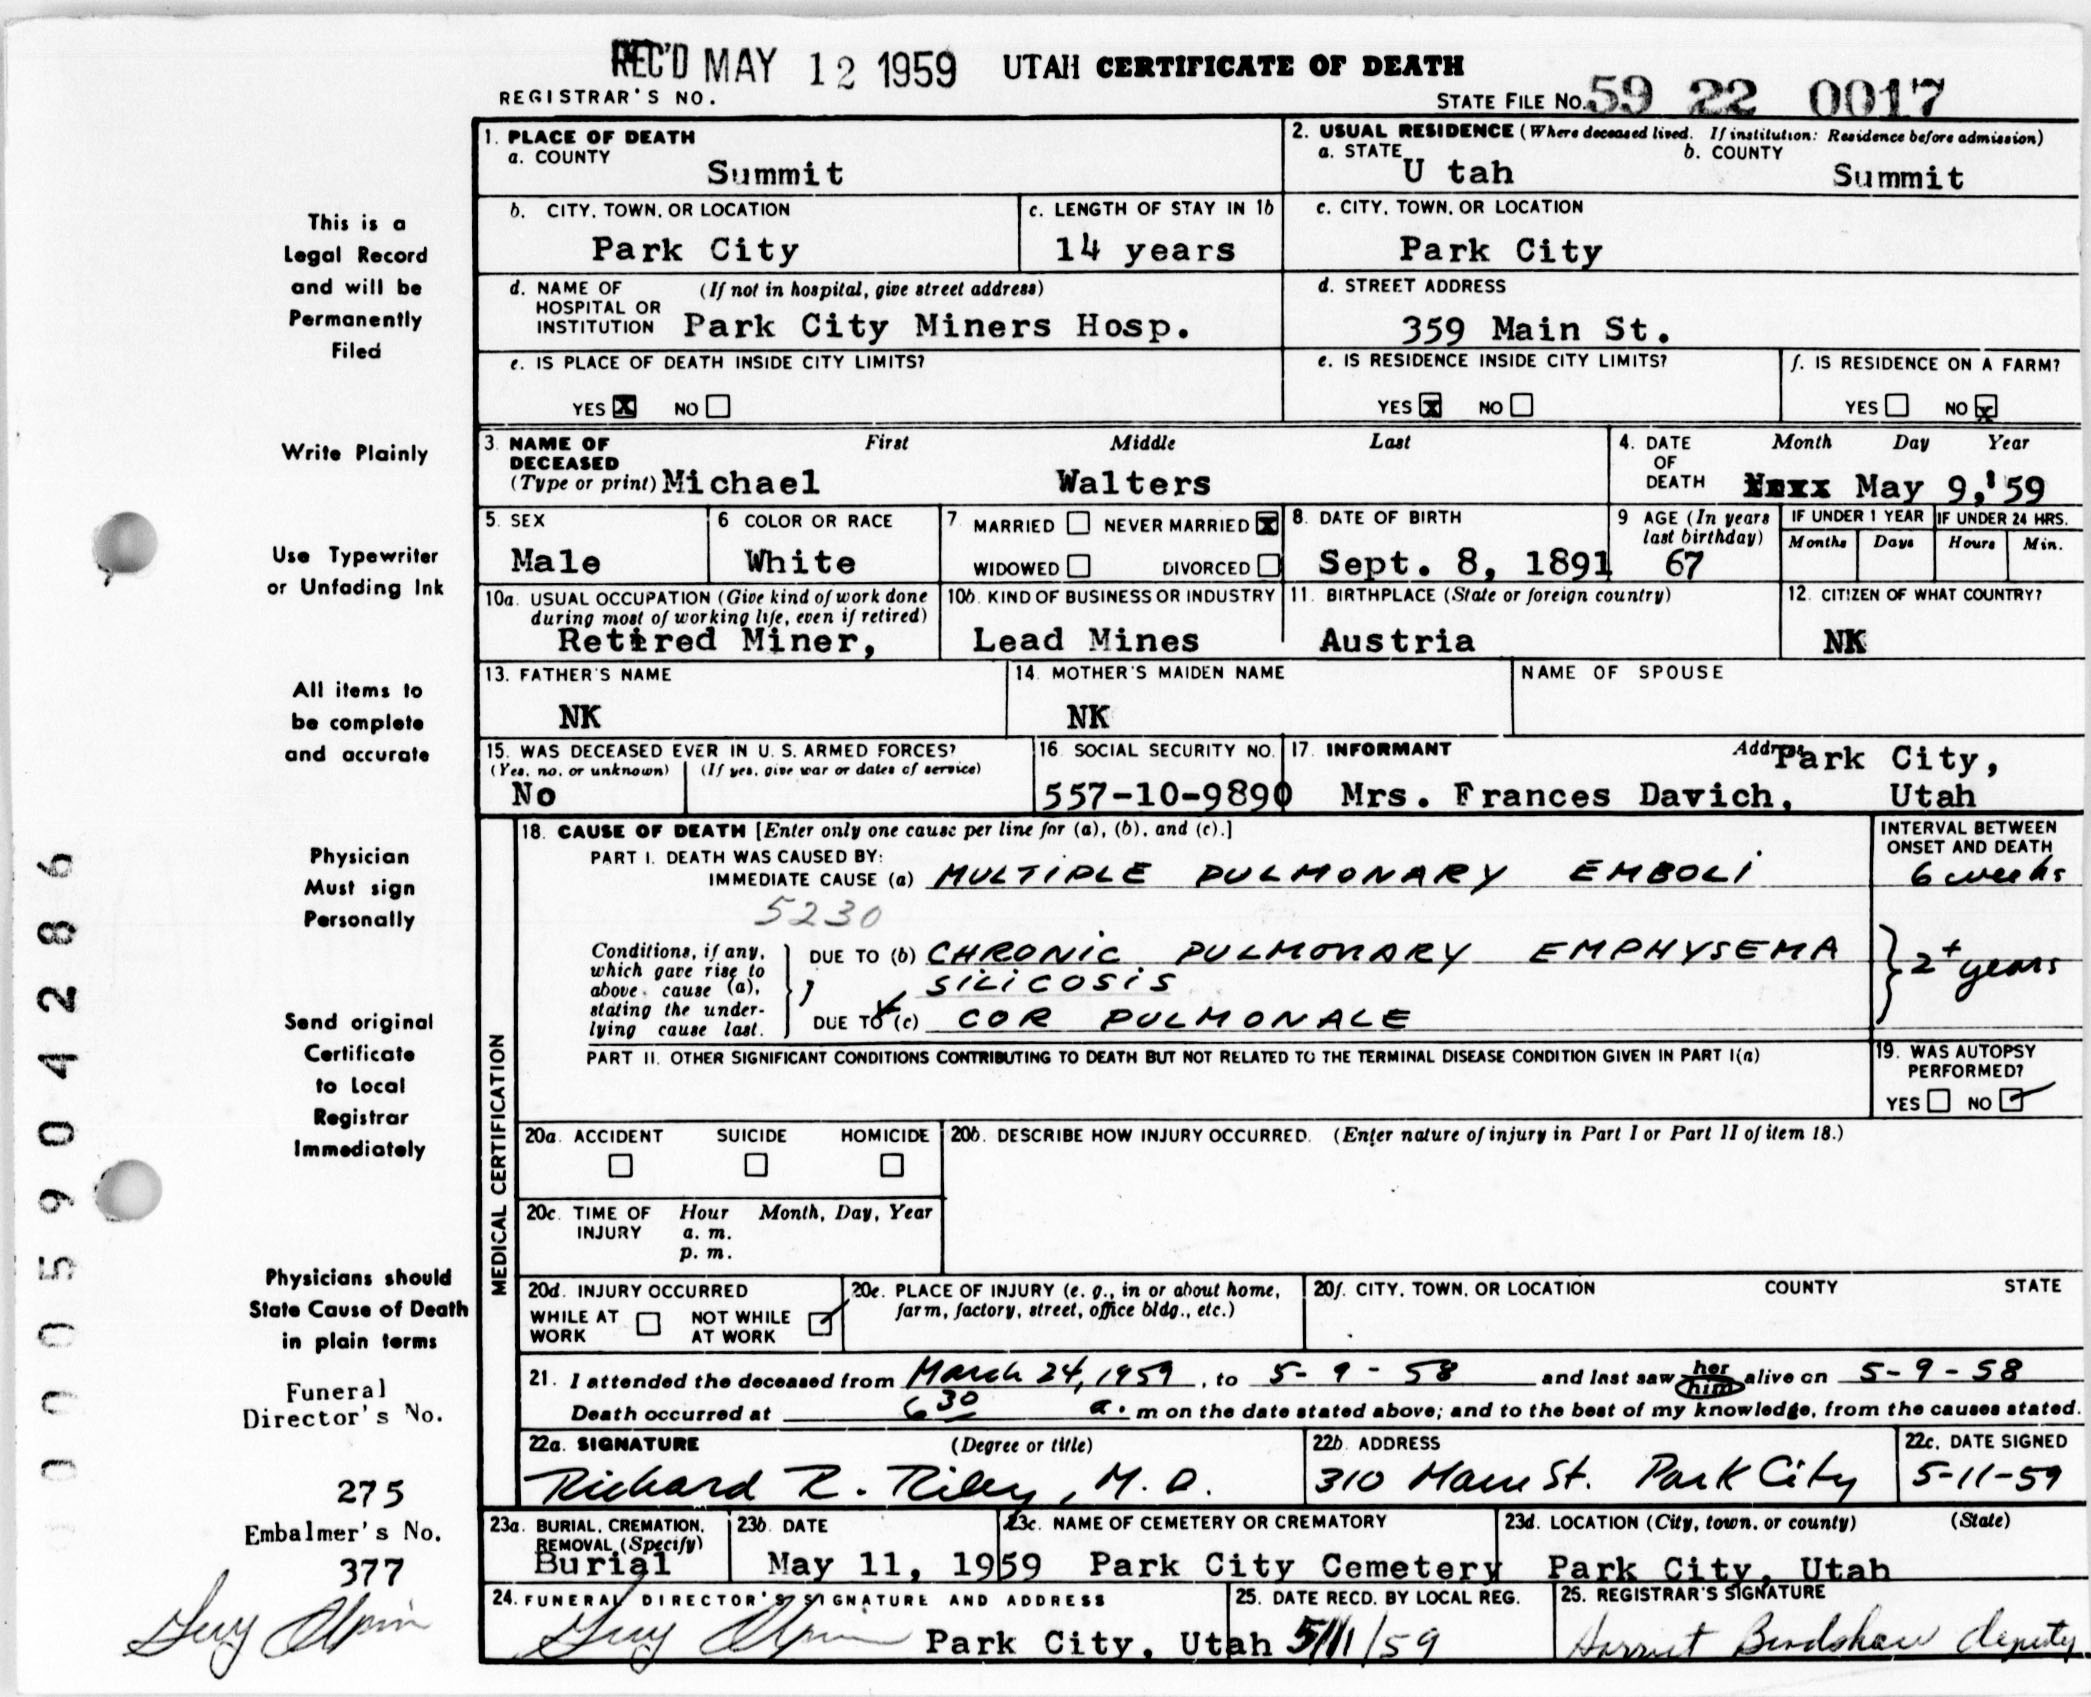 REC'D MAY 12 1959 UTAH CERTIFICATE OF DEATH
REGISTRAR'S NO.
STATE FILE NO. 59 22 0017
1. PLACE OF DEATH
a. COUNTY
Summit
2. USUAL RESIDENCE (Where deceased lived. If institution: Residence before admission)
a. STATE b. COUNTY
U tah Summit
b. CITY, TOWN, OR LOCATION
Park City
c. LENGTH OF STAY IN 1b
14 years
c. CITY, TOWN, OR LOCATION
Park City
d. NAME OF (If not in hospital, give street address)
HOSPITAL OR
INSTITUTION Park City Miners Hosp.
d. STREET ADDRESS
359 Main St.
e. IS PLACE OF DEATH INSIDE CITY LIMITS?
YES X NO
e. IS RESIDENCE INSIDE CITY LIMITS?
YES X NO
f. IS RESIDENCE ON A FARM?
YES NO X
3. NAME OF First Middle Last
DECEASED
(Type or print) Michael Walters
4. DATE Month Day Year
OF
DEATH May 9, '59
5. SEX
Male
6 COLOR OR RACE
White
7. MARRIED NEVER MARRIED X
WIDOWED DIVORCED
8. DATE OF BIRTH
Sept. 8, 1891
9 AGE (In years
last birthday)
67
IF UNDER 1 YEAR IF UNDER 24 HRS.
Months Days Hours Min.
10a. USUAL OCCUPATION (Give kind of work done
during most of working life, even if retired)
Retired Miner,
10b. KIND OF BUSINESS OR INDUSTRY
Lead Mines
11. BIRTHPLACE (State or foreign country)
Austria
12. CITIZEN OF WHAT COUNTRY?
NK
13. FATHER'S NAME
NK
14. MOTHER'S MAIDEN NAME
NK
NAME OF SPOUSE
15. WAS DECEASED EVER IN U. S. ARMED FORCES?
(Yes, no, or unknown) (If yes, give war or dates of service)
No
16. SOCIAL SECURITY NO.
557-10-9890
17. INFORMANT Address
Park City,
Mrs. Frances Davich, Utah
MEDICAL CERTIFICATION
18. CAUSE OF DEATH [Enter only one cause per line for (a), (b), and (c).]
INTERVAL BETWEEN
ONSET AND DEATH
PART I. DEATH WAS CAUSED BY:
IMMEDIATE CAUSE (a) MULTIPLE PULMONARY EMBOLI 6 weeks
5230
Conditions, if any,
which gave rise to
above cause (a),
stating the under-
lying cause last.
DUE TO (b) CHRONIC PULMONARY EMPHYSEMA
SILICOSIS
DUE TO (c) COR PULMONALE
2+ years
PART II. OTHER SIGNIFICANT CONDITIONS CONTRIBUTING TO DEATH BUT NOT RELATED TO THE TERMINAL DISEASE CONDITION GIVEN IN PART I(a)
19. WAS AUTOPSY
PERFORMED?
YES NO ✓
20a. ACCIDENT SUICIDE HOMICIDE
20b. DESCRIBE HOW INJURY OCCURRED. (Enter nature of injury in Part I or Part II of item 18.)
20c. TIME OF Hour Month, Day, Year
INJURY a. m.
p. m.
20d. INJURY OCCURRED
WHILE AT NOT WHILE ✓
WORK AT WORK
20e. PLACE OF INJURY (e. g., in or about home,
farm, factory, street, office bldg., etc.)
20f. CITY, TOWN, OR LOCATION COUNTY STATE
21. I attended the deceased from March 24, 1959, to 5-9-58 and last saw her him alive on 5-9-58
Death occurred at 6 30 a. m on the date stated above; and to the best of my knowledge, from the causes stated.
22a. SIGNATURE (Degree or title)
Richard R. Riley, M. D.
22b. ADDRESS
310 Main St. Park City
22c. DATE SIGNED
5-11-59
23a. BURIAL, CREMATION,
REMOVAL (Specify)
Burial
23b. DATE
May 11, 1959
23c. NAME OF CEMETERY OR CREMATORY
Park City Cemetery
23d. LOCATION (City, town, or county) (State)
Park City, Utah
24. FUNERAL DIRECTOR'S SIGNATURE AND ADDRESS
Park City, Utah
25. DATE RECD. BY LOCAL REG.
5/11/59
25. REGISTRAR'S SIGNATURE
Harriet Bradshaw deputy
This is a
Legal Record
and will be
Permanently
Filed
Write Plainly
Use Typewriter
or Unfading Ink
All items to
be complete
and accurate
Physician
Must sign
Personally
Send original
Certificate
to Local
Registrar
Immediately
Physicians should
State Cause of Death
in plain terms
Funeral
Director's No.
275
Embalmer's No.
377
0005904286